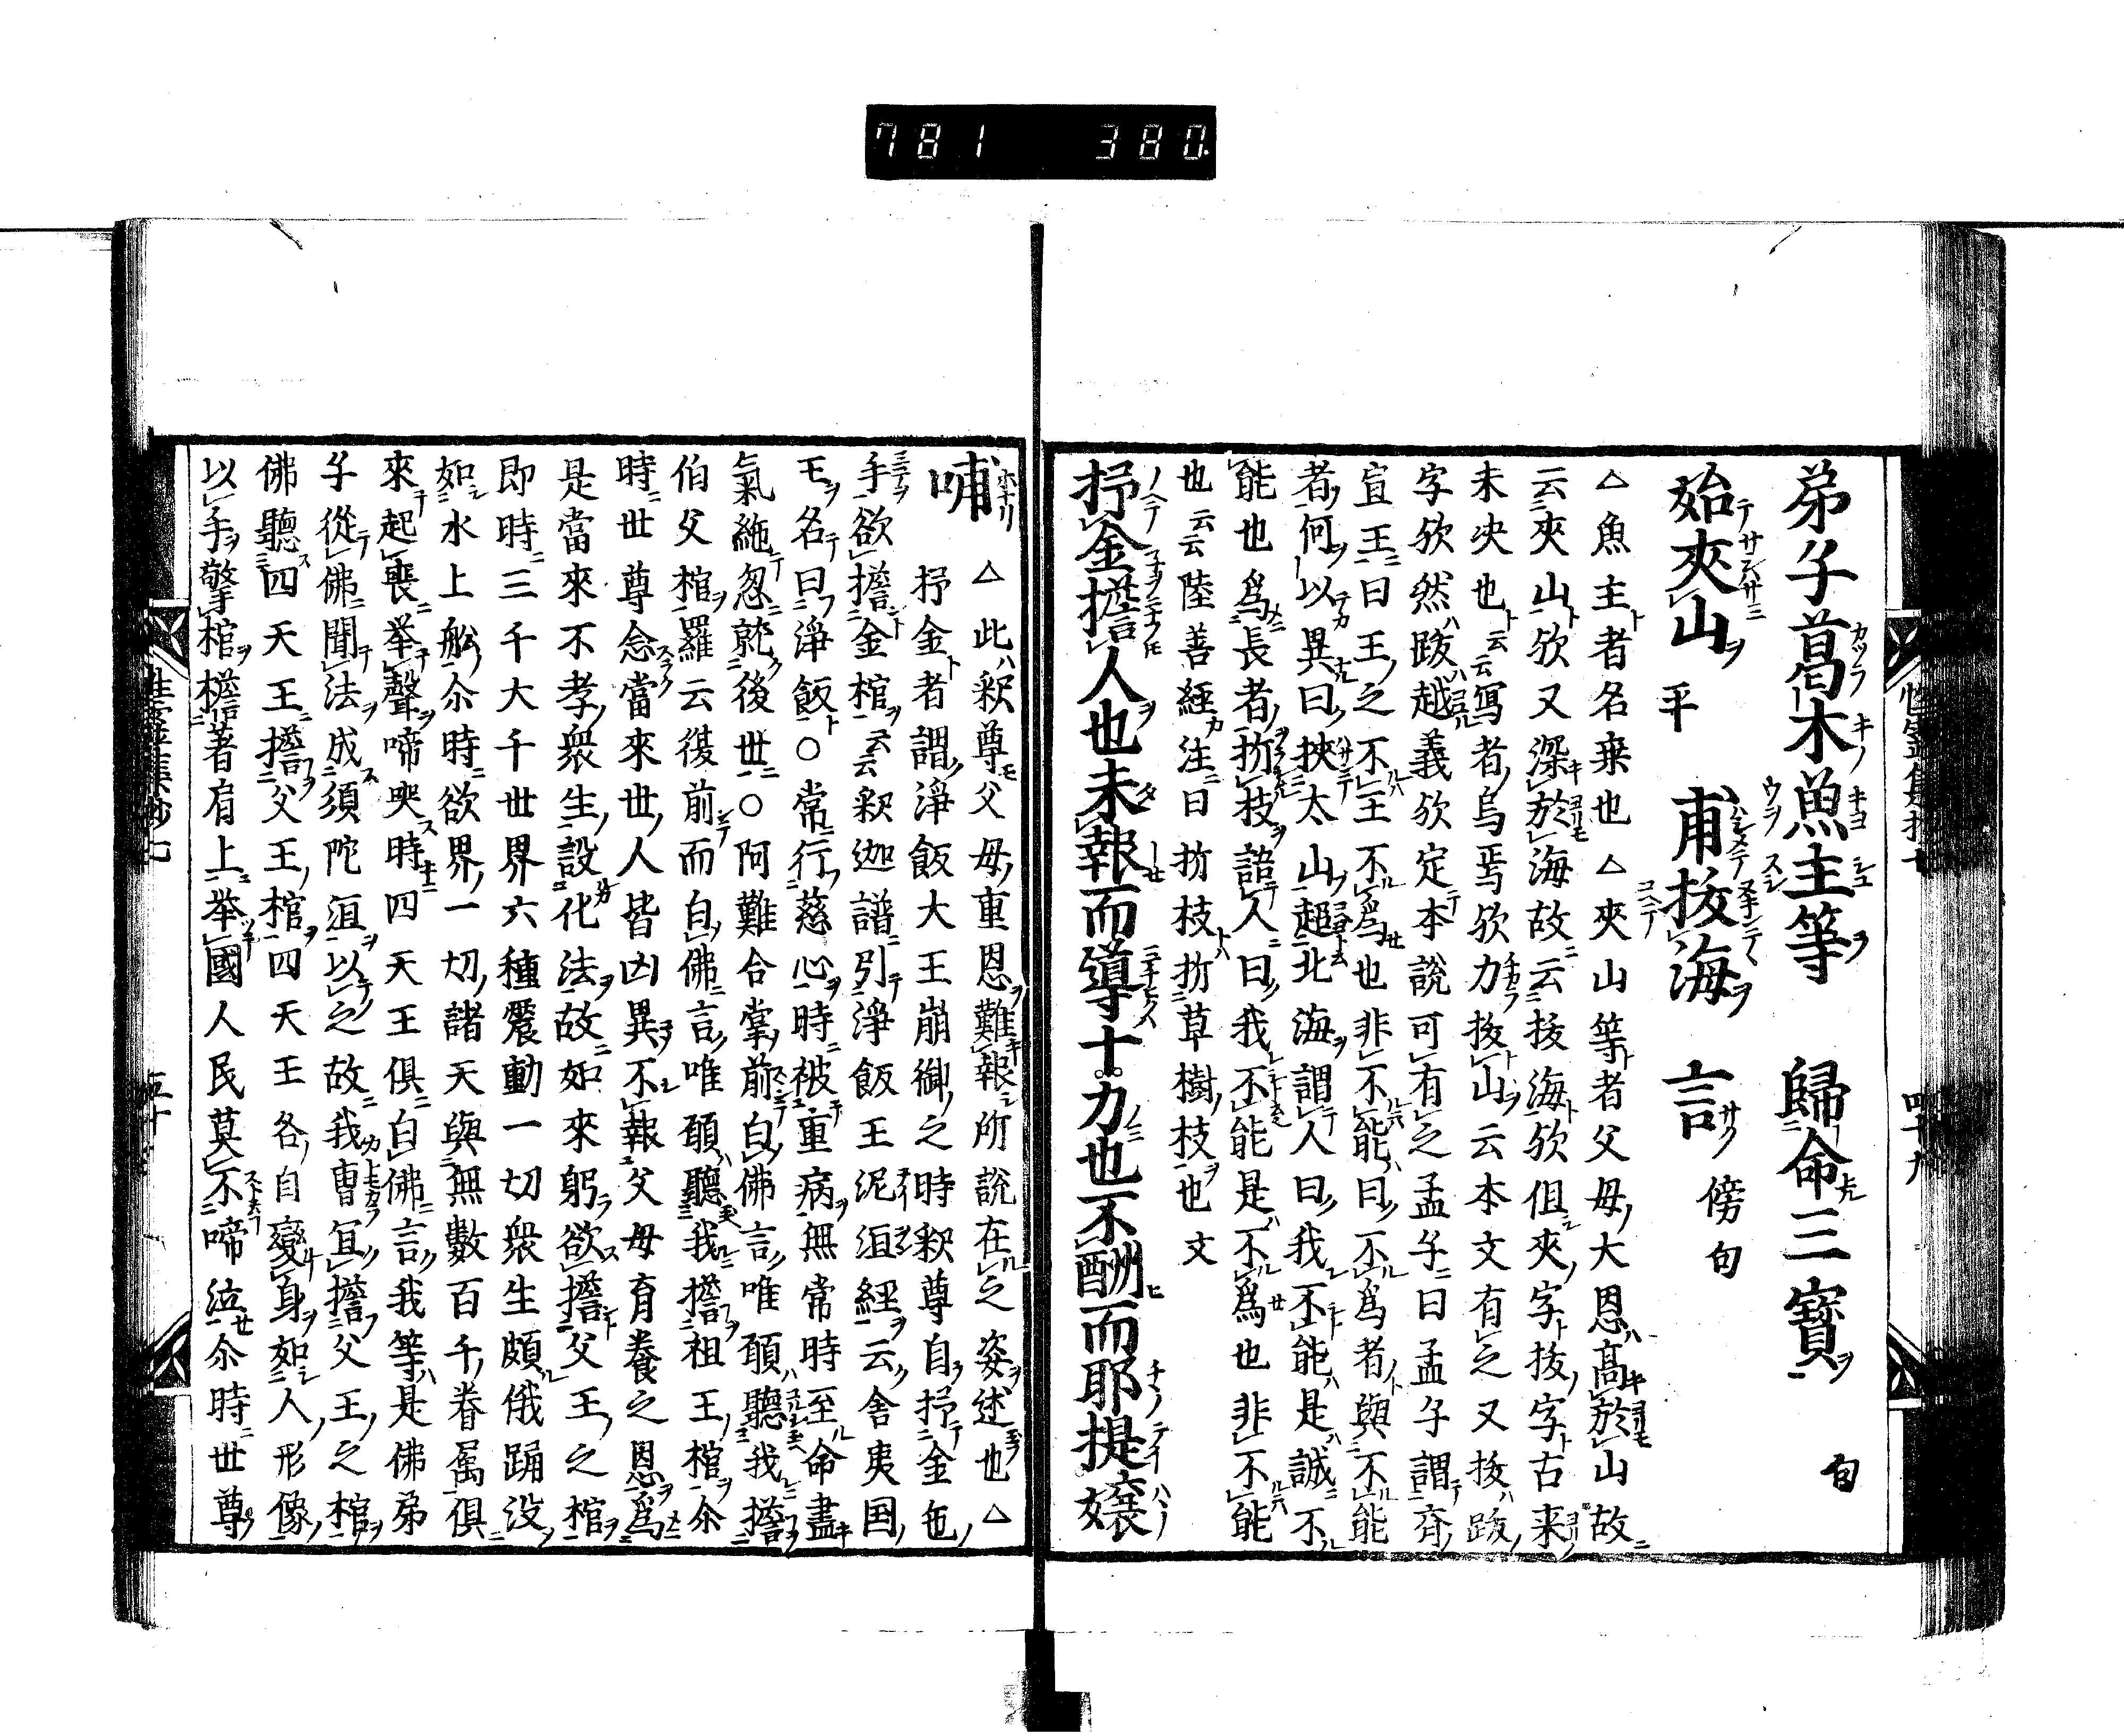 781 380
弟子葛木魚主等歸命三寶 句
始夾山 平 甫拔海 言 傍句
△魚主者名乗也△夾山等者父母大恩高於山故
云夾山欤又深於海故云拔海欤但夾字拔字古来
未决也云云冩者烏焉欤力拔山云本文有之又拔跋
字欤然跋越義欤定本説可有之孟子曰孟子謂齊
宣王曰王之不王不為也非不能曰不為者與不能
者何以異曰挾太山超北海謂人曰我不能是誠不
能也爲長者折枝語人曰我不能是不爲也非不能
也云云陸善経注曰折枝折草樹枝也文
抒金擔人也未報而導十力也不酬而耶提嬢
哺 △此釈尊父母重恩難報所説在之姿述也△
抒金者謂淨飯大王崩御之時釈尊自抒金毛
手欲擔金棺云云釈迦譜引淨飯王泥洹経云舎夷国
王名曰淨飯○常行慈心時被重病無常時至命盡
氣絁忽就後世○阿難合掌前白佛言唯願聽我擔
伯父棺羅云復前而白佛言唯願聽我擔祖王棺尒
時世尊念當來世人皆凶異不報父母育養之恩爲
是當來不孝衆生設化法故如來躬欲擔父王之棺
即時三千大千世界六種震動一切衆生頗俄踊没
如水上舩尒時欲界一切諸天與無數百千眷属俱
來起喪挙聲啼哭時四天王俱白佛言我等是佛弟
子從佛聞法成須陀洹以之故我曹宜擔父王之棺
佛聽四天王擔父王棺四天王各自變身如人形像
以手擎棺擔著肩上挙國人民莫不啼泣尒時世尊